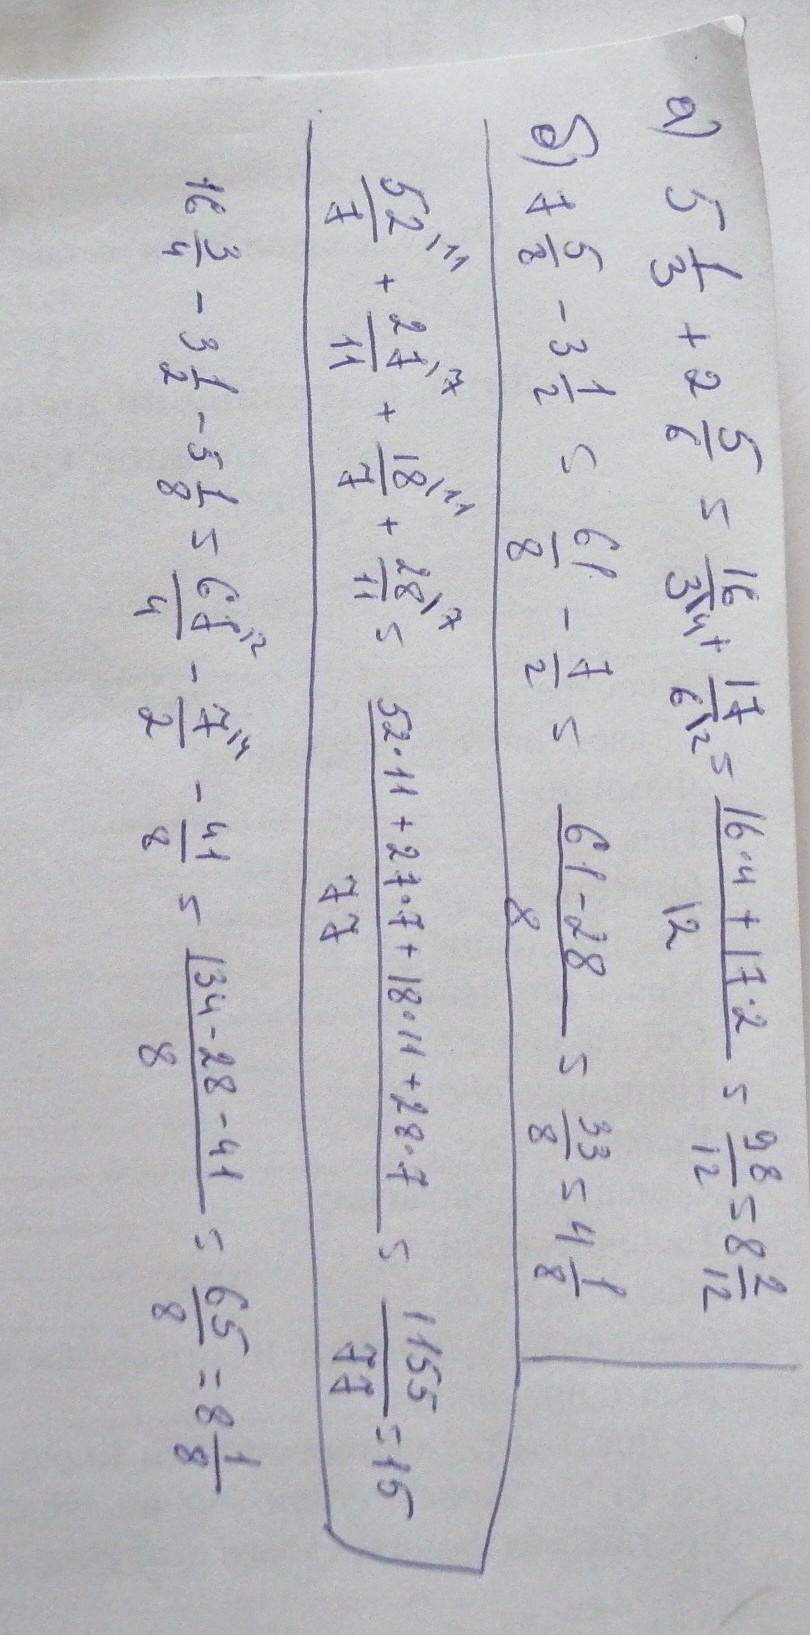 а) 5 1/3 + 2 5/6 = 16/3\4 + 17/6\2 = (16·4 + 17·2)/12 = 98/12 = 8 2/12
б) 7 5/8 - 3 1/2 = 61/8 - 7/2 = (61-28)/8 = 33/8 = 4 1/8
52\11/7 + 27\7/11 + 18\11/7 + 28\7/11 = (52·11 + 27·7 + 18·11 + 28·7)/77 = 1155/77 = 15
16 3/4 - 3 1/2 - 5 1/8 = 67\2/4 - 7\4/2 - 41/8 = (134-28-41)/8 = 65/8 = 8 1/8